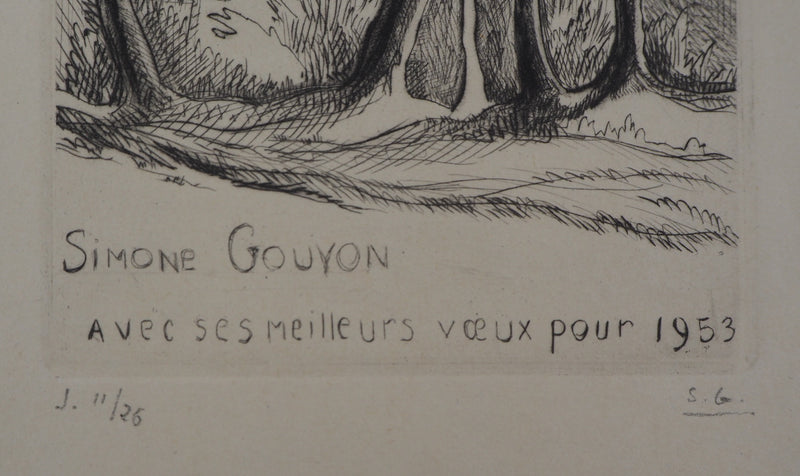 Simone Gouyon
avec ses meilleurs vœux pour 1953
J. 11/26 S. G.